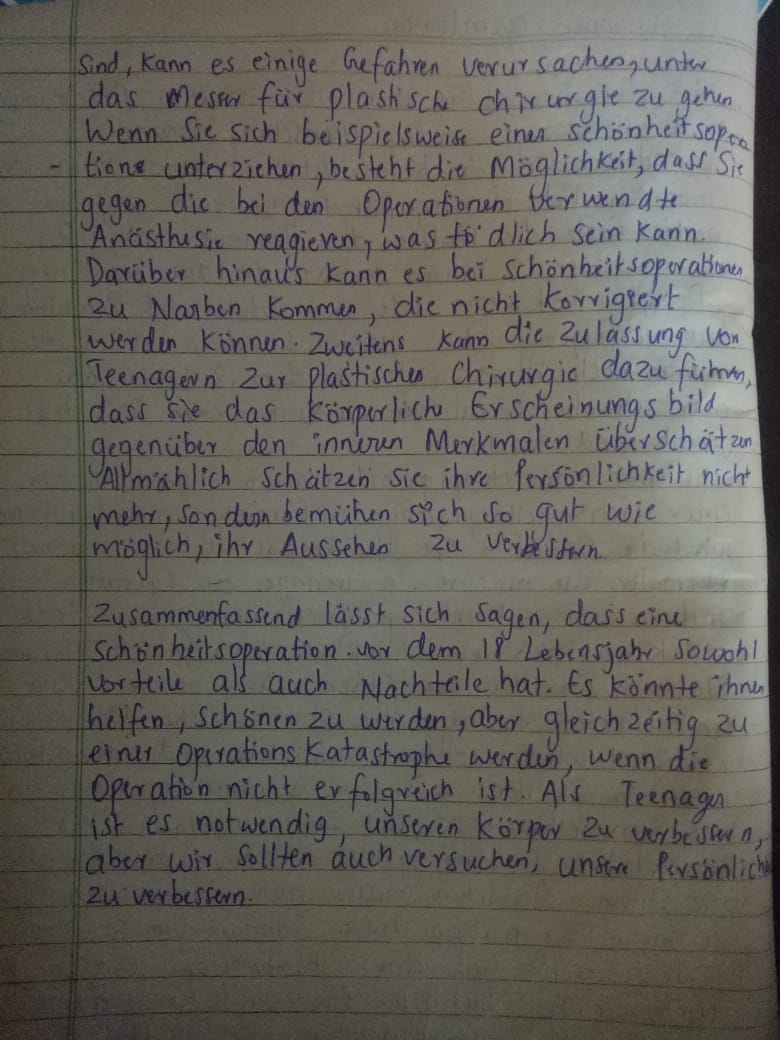 Sind, kann es einige Gefahren verursachen, unter
das Messer für plastische chirurgie zu gehen.
Wenn Sie sich beispielsweise einer schönheitsopera
- tione unterziehen, besteht die Möglichkeit, dass Sie
gegen die bei den Operationen verwendte
Anästhesie reagieren, was tödlich sein kann.
Darüber hinaus kann es bei schönheitsoperationen
zu Narben kommen, die nicht korrigiert
werden können. Zweitens kann die Zulassung von
Teenagern zur plastischen Chirurgie dazu führen,
dass sie das körperliche Erscheinungsbild
gegenüber den inneren Merkmalen überschätzen
Allmählich schätzen sie ihre Persönlichkeit nicht
mehr, sondern bemühen sich so gut wie
möglich, ihr Aussehen zu verbessern.
Zusammenfassend lässt sich sagen, dass eine
schönheitsoperation vor dem 18 Lebensjahr sowohl
vorteile als auch Nachteile hat. Es könnte ihnen
helfen, schönen zu werden, aber gleichzeitig zu
einer Operations katastrophe werden, wenn die
Operation nicht erfolgreich ist. Als Teenager
ist es notwendig, unseren körper zu verbessern,
aber wir sollten auch versuchen, unsere
zu verbessern.